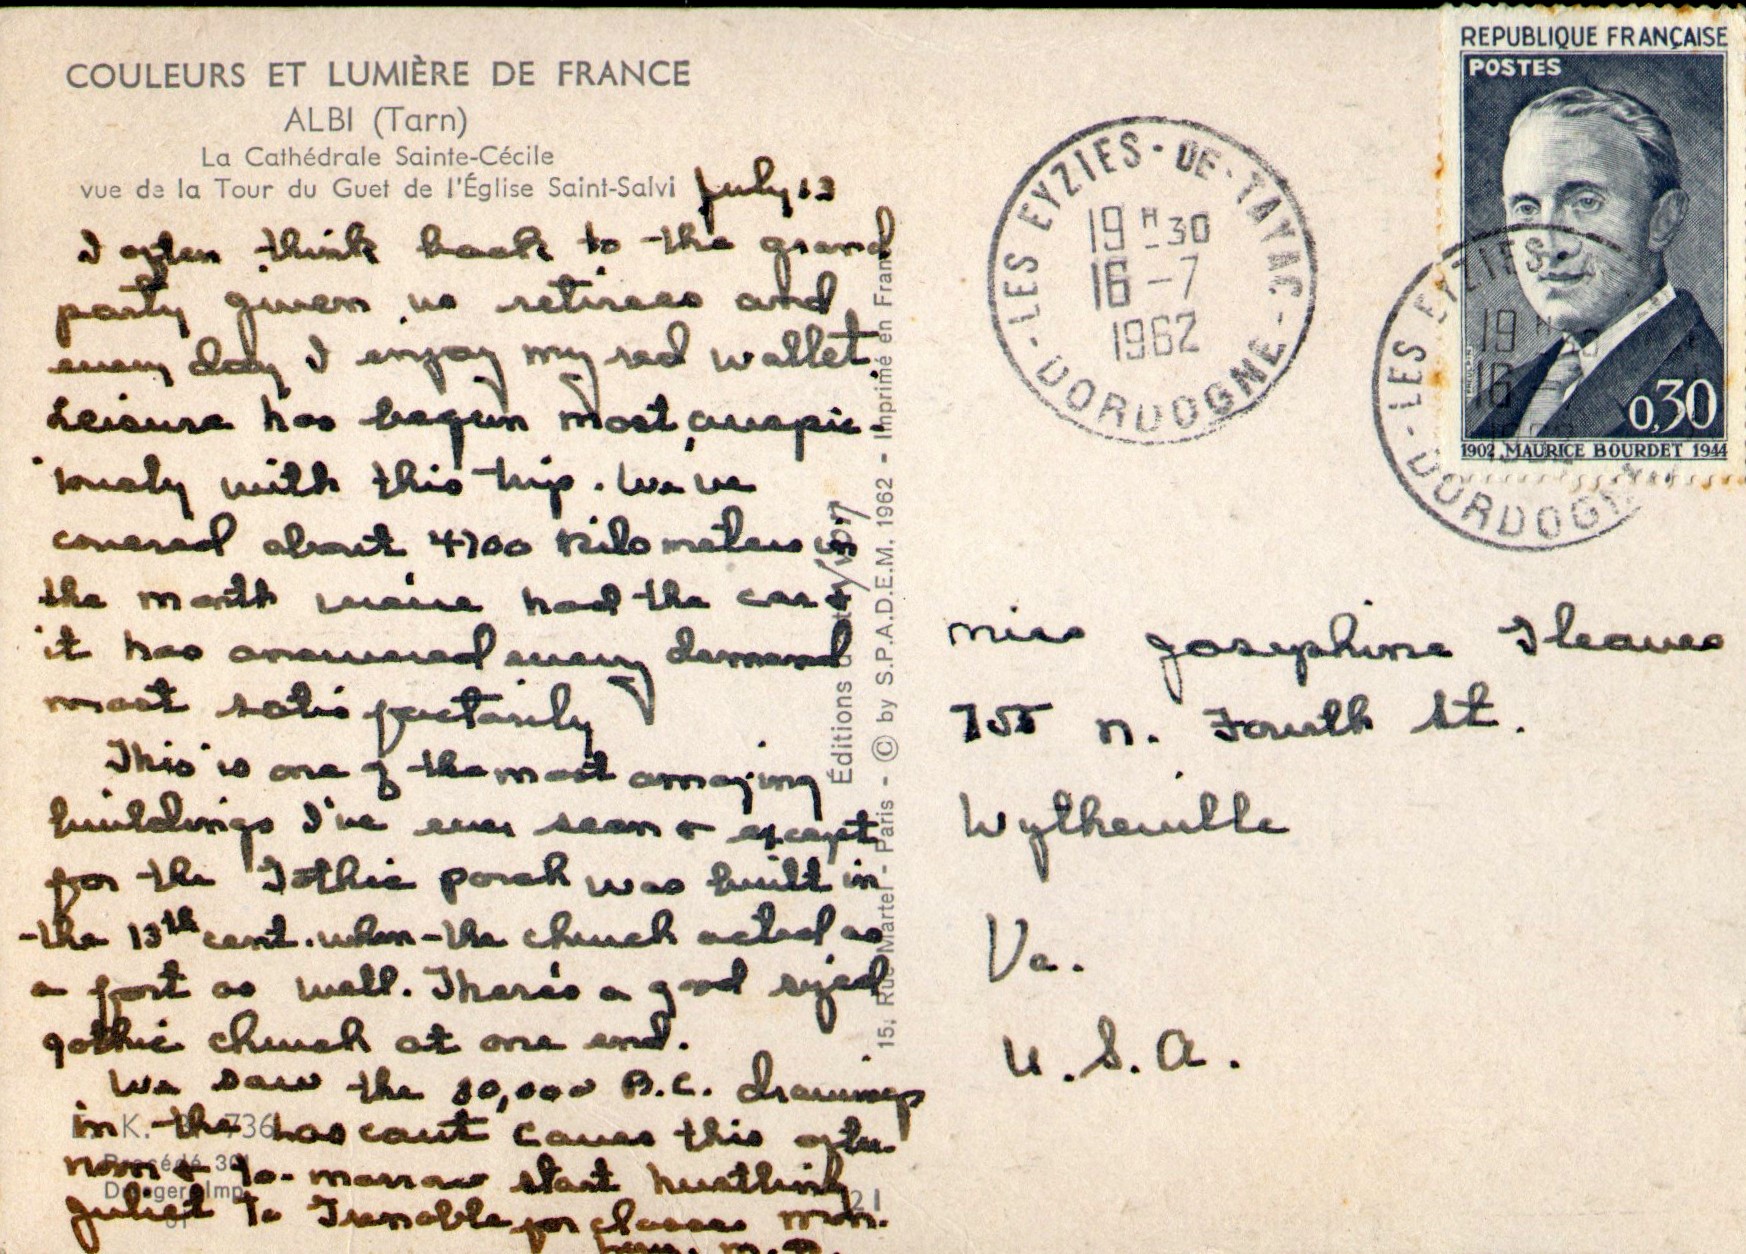 COULEURS ET LUMIÈRE DE FRANCE
ALBI (Tarn)
La Cathédrale Sainte-Cécile
vue de la Tour du Guet de l'Église Saint-Salvi
July 13
I often think back to the grand
party given us retirees and
every day I enjoy my red wallet.
Leisure has begun most auspic-
iously with this trip. We've
covered about 4700 kilometers in
the month we've had the car &
it has answered every demand
most satisfactorily
This is one of the most amazing
buildings I've ever seen & except
for the Gothic porch was built in
the 13th cent. when the church acted as
a fort as well. There's a good sized
gothic church at one end.
We saw the 30,000 B.C. drawings
in the Lascaut Caves this after
noon & to-morrow start hustling
Juliet to Grenoble for classes Mon.
Éditions d'art
15, Rue Martel - Paris - © by S.P.A.D.E.M. 1962 - Imprimé en France
K. 736
Procédé 301
Draeger Imp.
21
REPUBLIQUE FRANÇAISE
POSTES
0,30
1902 MAURICE BOURDET 1944
LES EYZIES-DE-TAYAC
19 H 30
16 - 7
1962
DORDOGNE
LES EYZIES
19 H 30
16
1962
DORDOGNE
Miss Josephine Gleaves
755 N. Fourth St.
Wytheville
Va.
U.S.A.